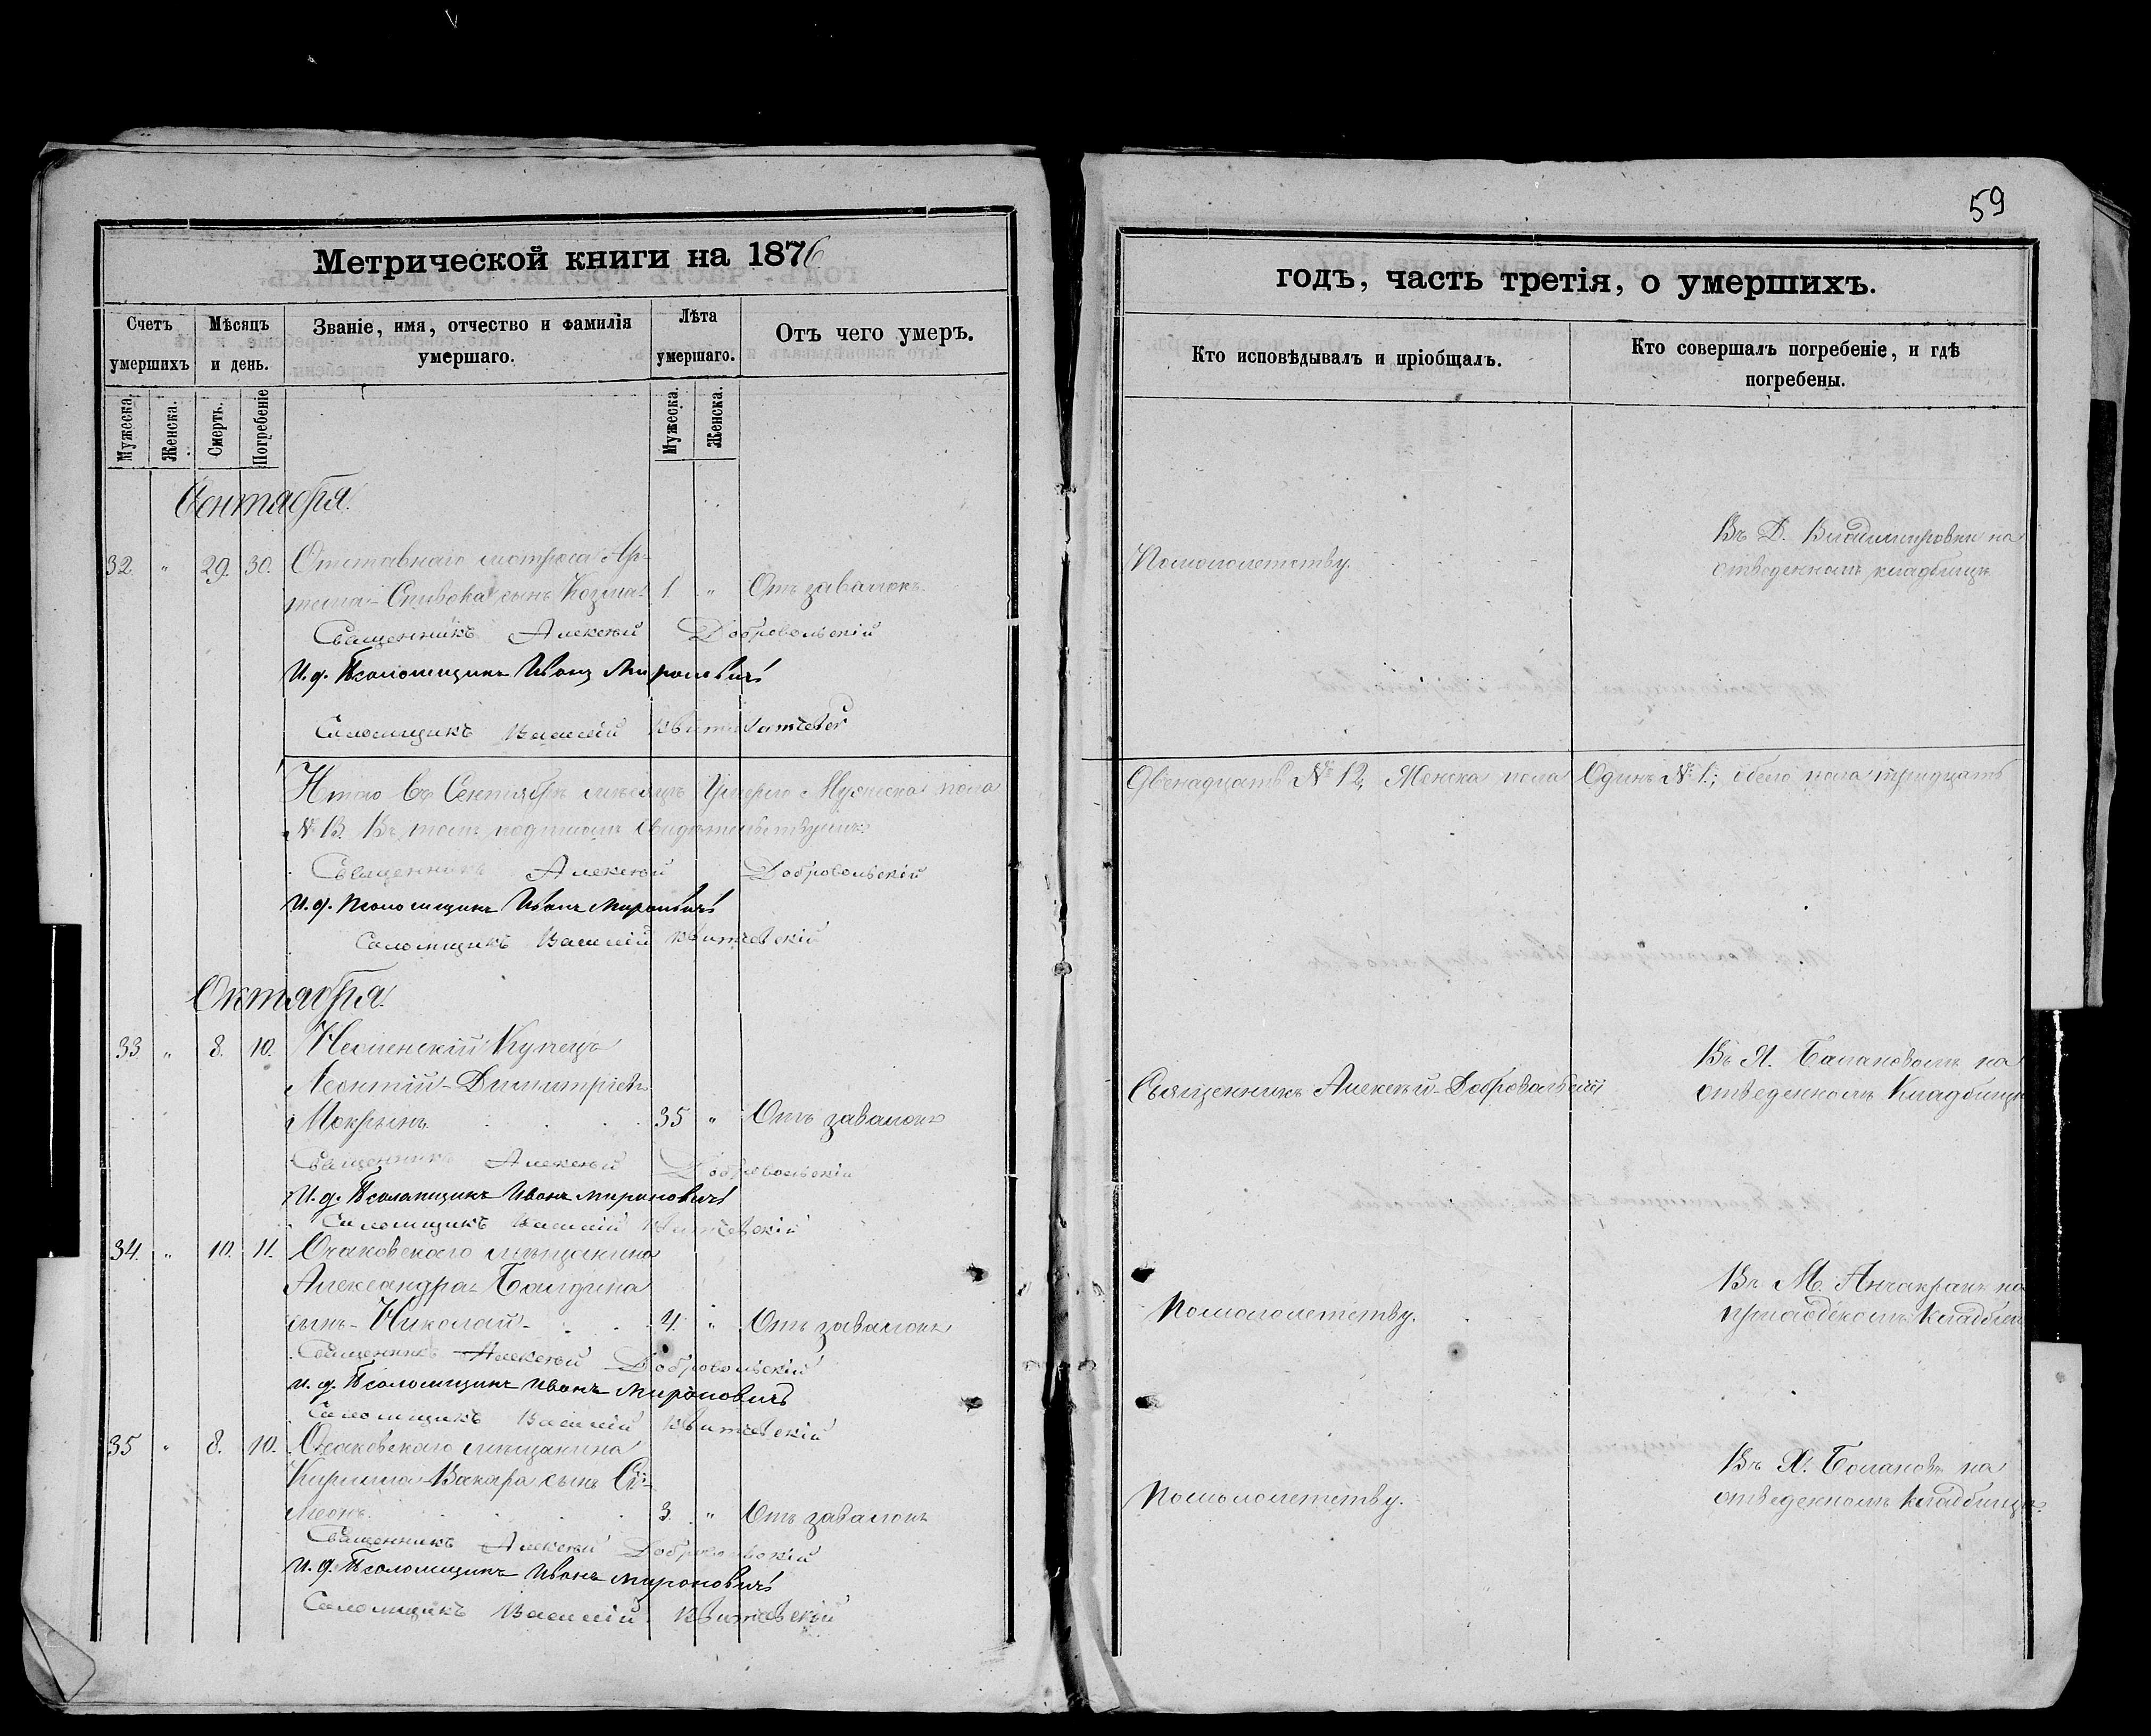 59
Метрической книги на 1876
годъ, часть третія, о умершихъ.
Счетъ умершихъ
Мѣсяцъ и день.
Званіе, имя, отчество и фамилія умершаго.
Лѣта умершаго.
Отъ чего умеръ.
Кто исповѣдывалъ и пріобщалъ.
Кто совершалъ погребеніе, и гдѣ погребены.
Мужеска.
Женска.
Смерть.
Погребеніе
Мужеска.
Женска.
Сентября.
32 " 29. 30. Отставнаго матроса Ар-
тема Спивока сынъ Козма 1. " Отъ завалокъ
Помололетству.
Въ Д. Владимировки на
отведенномъ кладбищѣ
Священникъ Алексѣй Добровольскій
И. д. Псаломщикъ Иванъ Мироновичъ
Саломщикъ Василій
Итого въ Сентябрѣ мѣсяцѣ Умерло Мужеска пола
Двенадцать № 12, Женска пола Одинъ № 1; обоего пола тринадцать
№ 13. Въ томъ подписомъ свидѣтельствуемъ:
Священникъ Алексѣй Добровольскій
И. д. Псаломщикъ Иванъ Мироновичъ
Саломщикъ Василій Квитчевскій
Октября.
33. " 8. 10. Купецъ
Леонтій Димитріевъ
Мокрынъ 35 " Отъ завалокъ
Священникъ Алексѣй Добровольскій
Въ Я. Балановомъ на
отведенномъ Кладбищѣ
Священникъ Алексѣй Добровольскій
И. д. Псаломщикъ Иванъ Мироновичъ
Саломщикъ Василій Квитчевскій
34. " 10. 11. Очаковскаго мѣщанина
Александра Болдина
сынъ Николай 4. " Отъ завалокъ
Помололетству.
Въ М. Анчакракъ на
Кладбищ
Священникъ Алексѣй Добровольскій
И. д. Псаломщикъ Иванъ Мироновичъ
Саломщикъ Василій Квитчевскій
35 " 8. 10. Очаковскаго мѣщанина
Кирилла Вакара сынъ Си-
меонъ. 3. " Отъ завалокъ
Помололетству.
Въ Х. Боланов на
отведенномъ кладбищѣ.
Священникъ Алексѣй Добровольскій
И. д. Псаломщикъ Иванъ Мироновичъ
Саломщикъ Василій Квитчевскій